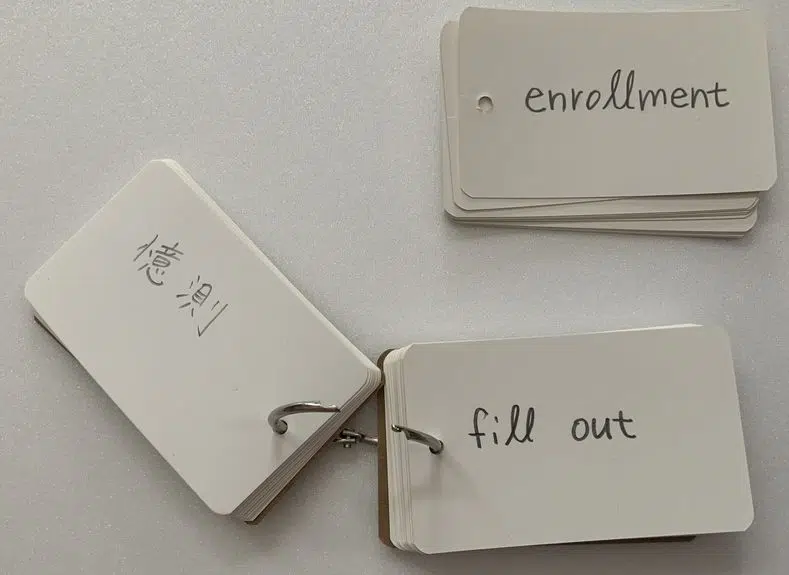 enrollment
憶測
fill out